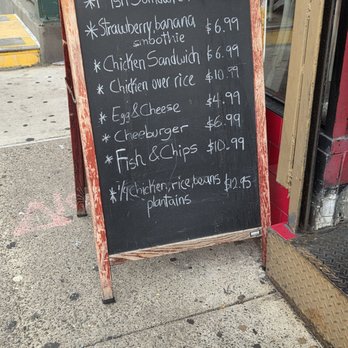 * Strawberry banana $6.99
smoothie
* Chicken Sandwich $6.99
* Chicken over rice $10.99
* Egg & Cheese $4.99
* Cheeburger $6.99
* Fish & Chips $10.99
* 1/4 chicken, rice, beans $12.95
plantains